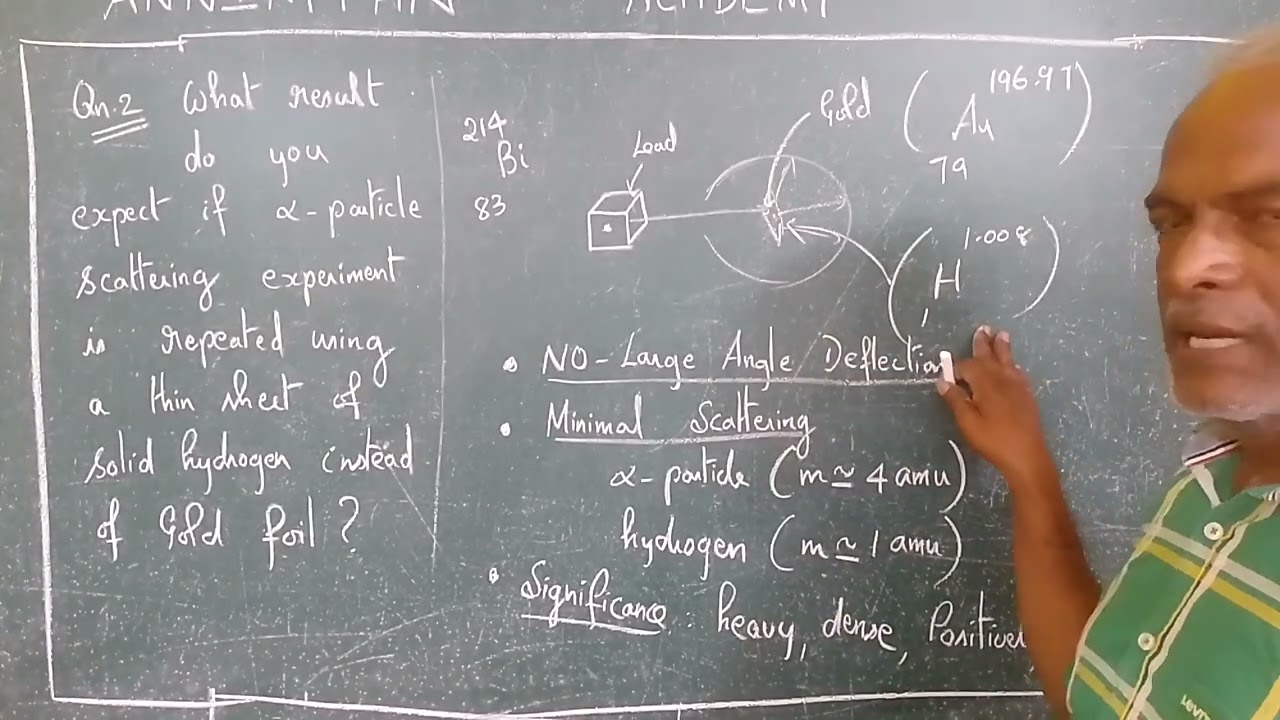 ACADEMY
Qn.2 What result
do you
expect if α-particle
scattering experiment
is repeated using
a thin sheet of
solid hydrogen instead
of Gold foil?
214
Bi
83
Lead
Gold
196.97
Au
79
1.008
H
1
• NO-Large Angle Deflection
• Minimal Scattering
α-particle (m ≃ 4 amu)
hydrogen (m ≃ 1 amu)
• Significance: heavy, dense,